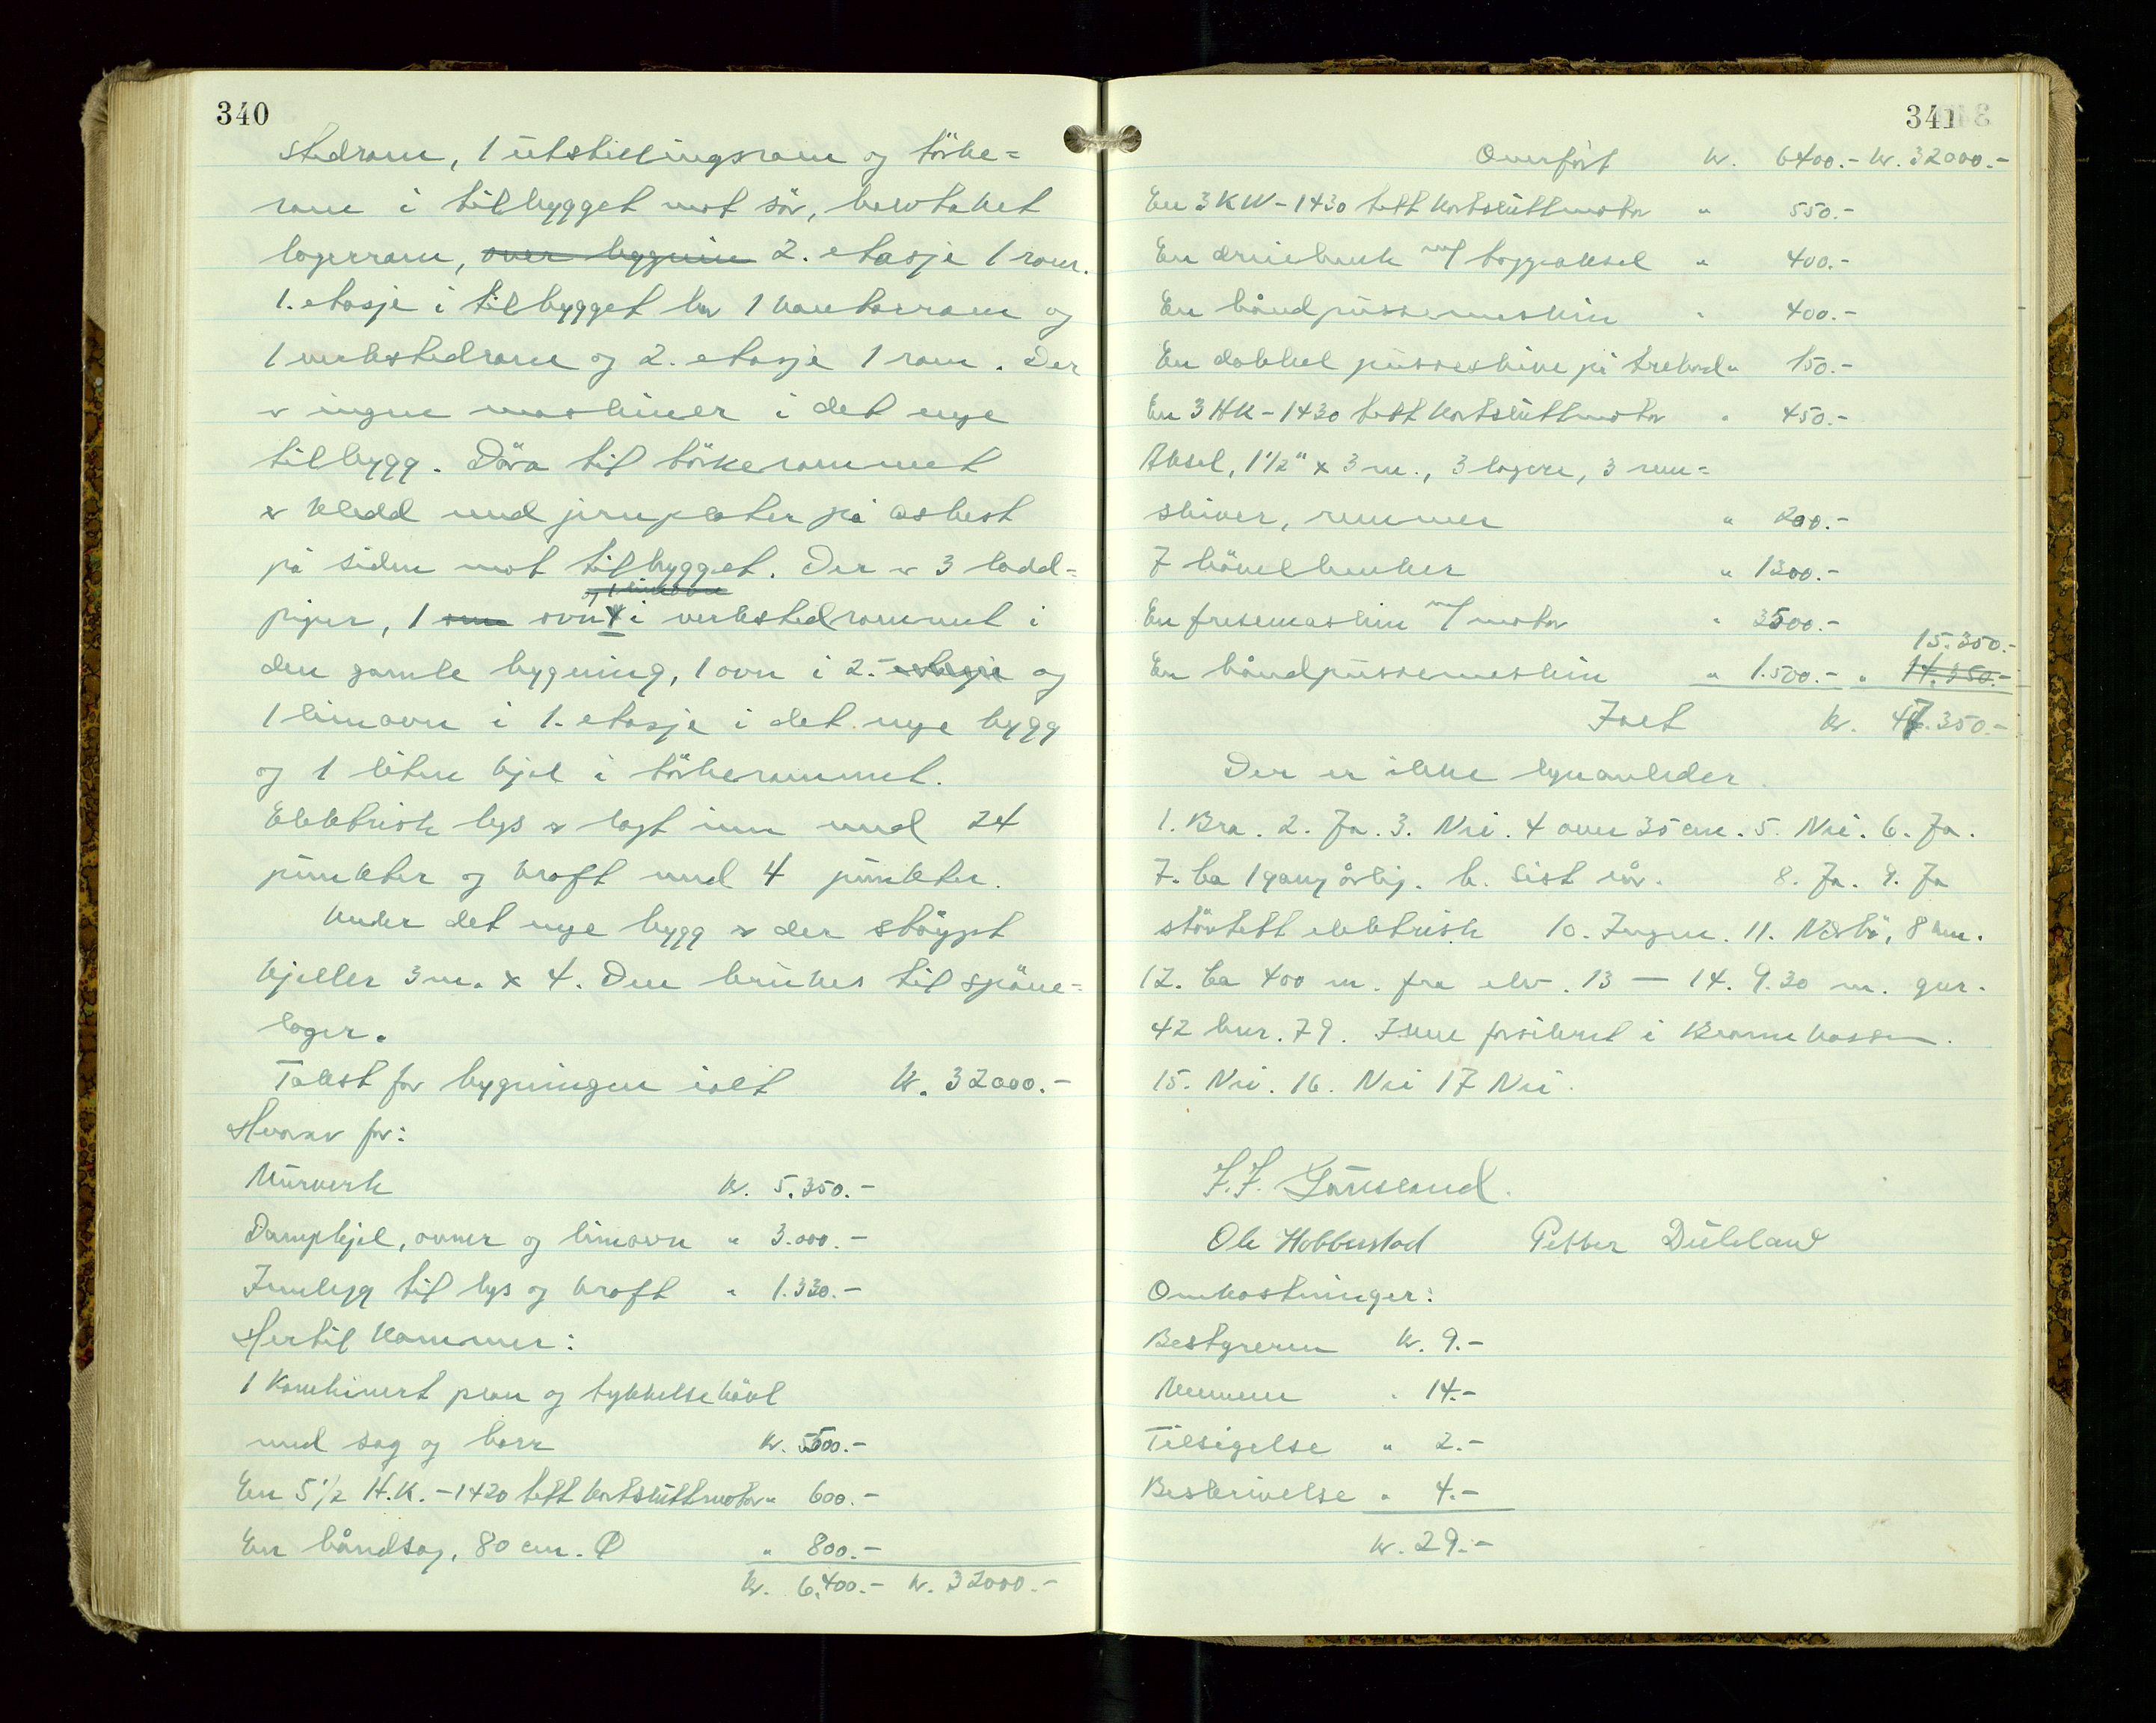 340
stedrom, 1 utstillingsrom og törke=
rom i tilbygget mot sör, halvtaket
lagerrom, over bygnin 2. etasje 1 rom.
1. etasje i tilbygget har 1 kontorrom og
1 verkstedrom og 2. etasje 1 rom. Der
er ingen maskiner i det nye
tilbygg. Döra til törkerommet
er kledd med jernplater på asbest
på siden mot tilbygget. Der er 3 ladd=
piper, 1 ovn i verkstedrommet i
den gamle bygning, 1 ovn i 2. etasje og
1 limovn i 1. etasje i det nye bygg
og 1 liten kjel i törkerommet.
Elektrisk lys er lagt inn med 24
punkter og kraft med 4 punkter.
Under det nye bygg er der stöypt
kjeller 3 m. x 4. Den brukes til spöne=
lager.
Takst for bygningen ialt kr. 32000.-
Hvorav for:
Murverk kr. 5.350.-
Dampkjel, ovner og limovn " 3.000.-
Innlegg til lys og kraft " 1.330.-
Hertil kommer:
1 Kombinert plan og tykkelsehövl
med sag og borr kr. 5000.-
En 5 1/2 H.K. - 1420 tett kortsluttmotor " 600.-
En båndsag, 80 cm. Ø " 800.-
kr. 6.400.- kr. 32000.-
341
Overfört kr. 6400.- kr. 32000.-
En 3 KW - 1430 tett kortsluttmotor " 550.-
En dreiebenk m/ toppaksel " 400.-
En båndpussemaskin " 400.-
En dobbel pusseskive på trebord " 150.-
En 3 HK - 1430 tett kortsluttmotor " 450.-
Aksel, 1 1/2" x 3 m., 3 lagere, 3 rem=
skiver, remmer " 200.-
7 hövelbenker " 1300.-
En fresemaskin m/ motor " 3500.-
15.350.-
En båndpussemaskin " 1.500.- " 14.350.-
Ialt kr. 47.350.-
Der er ikke lynavleder.
1. Bra. 2. Ja. 3. Nei. 4 over 35 cm. 5. Nei. 6. Ja.
7. ca 1 gang årlig. b. Sist iår. 8. Ja. 9. Ja
stövtett elektrisk 10. Ingen. 11. Nesbö, 8 km.
12. ca 400 m. fra elv. 13 — 14. 9.30 m. gnr.
42 bnr. 79. Ikke forsikret i Brannkassen.
15. Nei. 16. Nei 17 Nei.
Ole Hobberstad Petter Dueland
Omkostninger:
Bestyreren kr. 9.-
Mennene " 14.-
Tilsigelse " 2.-
Beskrivelse " 4.-
kr. 29.-